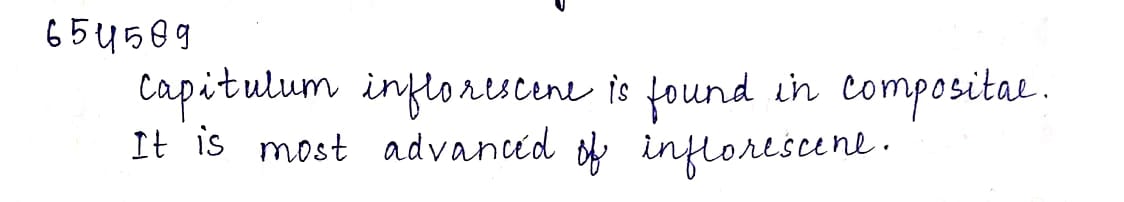 654589
Capitulum inflorescene is found in compositae.
It is most advanced of inflorescene.